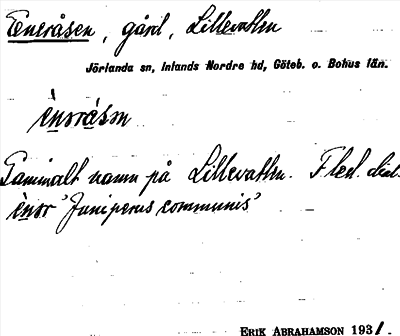 Eneråsen, gård, Lillevatten
Jörlanda sn, Inlands Nordre hd, Göteb. o. Bohus län.
ènəråsən
Gammalt namn på Lillevatten. Fled. dial.
ènər 'Juniperus communis'
ERIK ABRAHAMSON 1931.